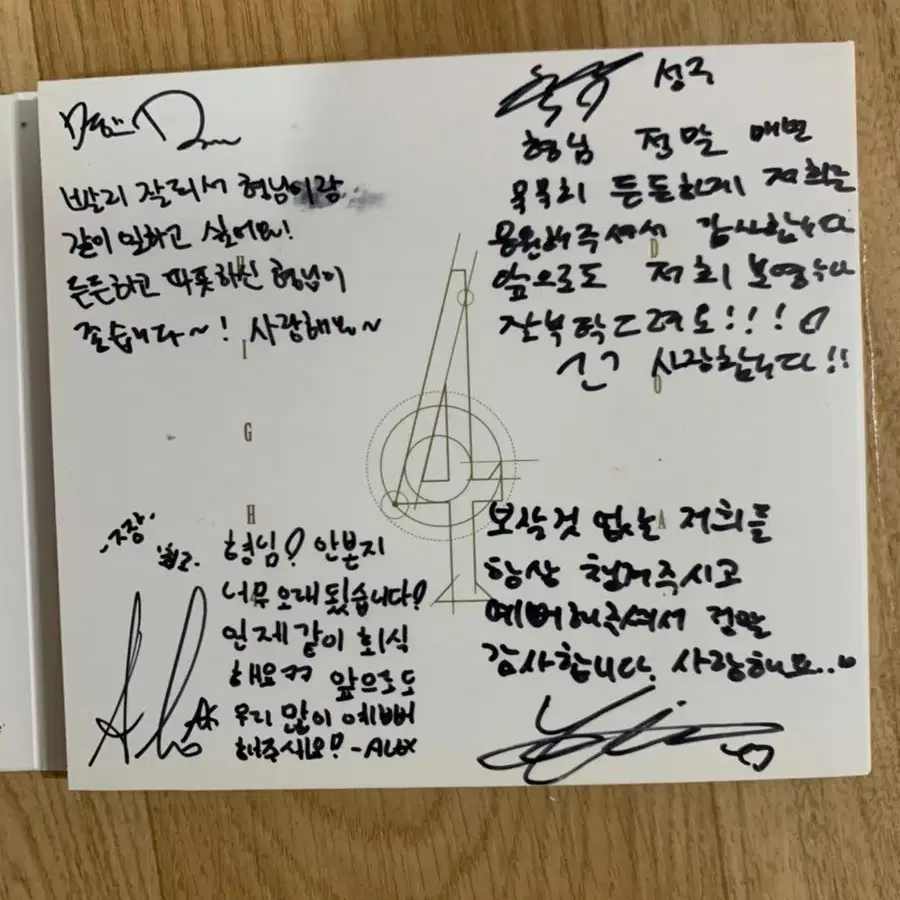 빨리 잘되서 형님이랑
같이 일하고 싶어요!
든든하고 따뜻하신 형님이
좋습니다~! 사랑해요~
성국
형님 정말 매번
묵묵히 든든하게 저희를
응원해주셔서 감사합니다
앞으로도 저희
잘 부탁드려요!!!
사랑합니다!!
I
G
H
D
O
A
형님? 안본지
너무 오래 됬습니다?
언제 같이 회식
해요ㅋㅋ 앞으로도
우리 많이 예뻐
해주세요? -ALEX
보잘것 없는 저희를
항상 챙겨주시고
예뻐해주셔서 정말
감사합니다. 사랑해요..